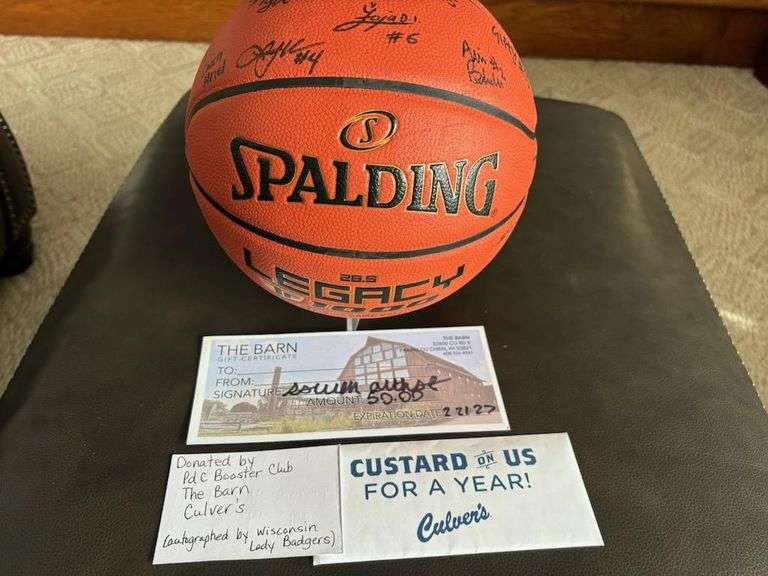 #6
#4
S
SPALDING
28.5
LEGACY
1000
THE BARN
GIFT CERTIFICATE
THE BARN
TO:
FROM:
SIGNATURE
AMOUNT 50.00
EXPIRATION DATE 2 21 27
Donated by
PdC Booster Club
The Barn
Culver's
(autographed by Wisconsin
Lady Badgers)
CUSTARD ON US
FOR A YEAR!
Culver's